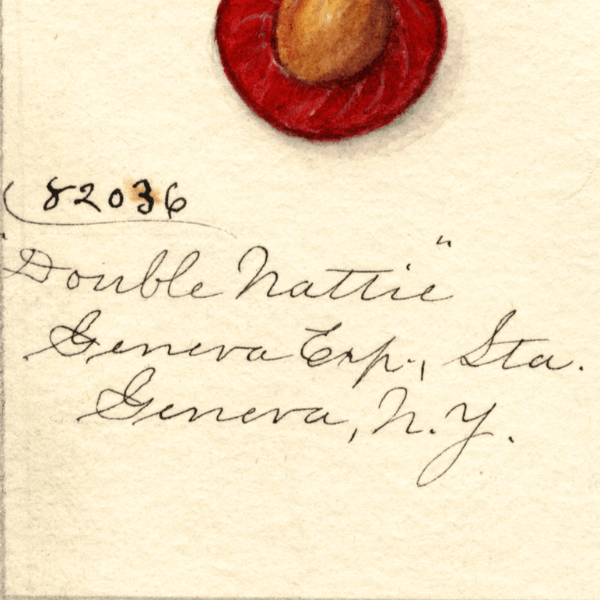 82036
"Double Nattie"
Geneva Exp., Sta.
Geneva, N.Y.